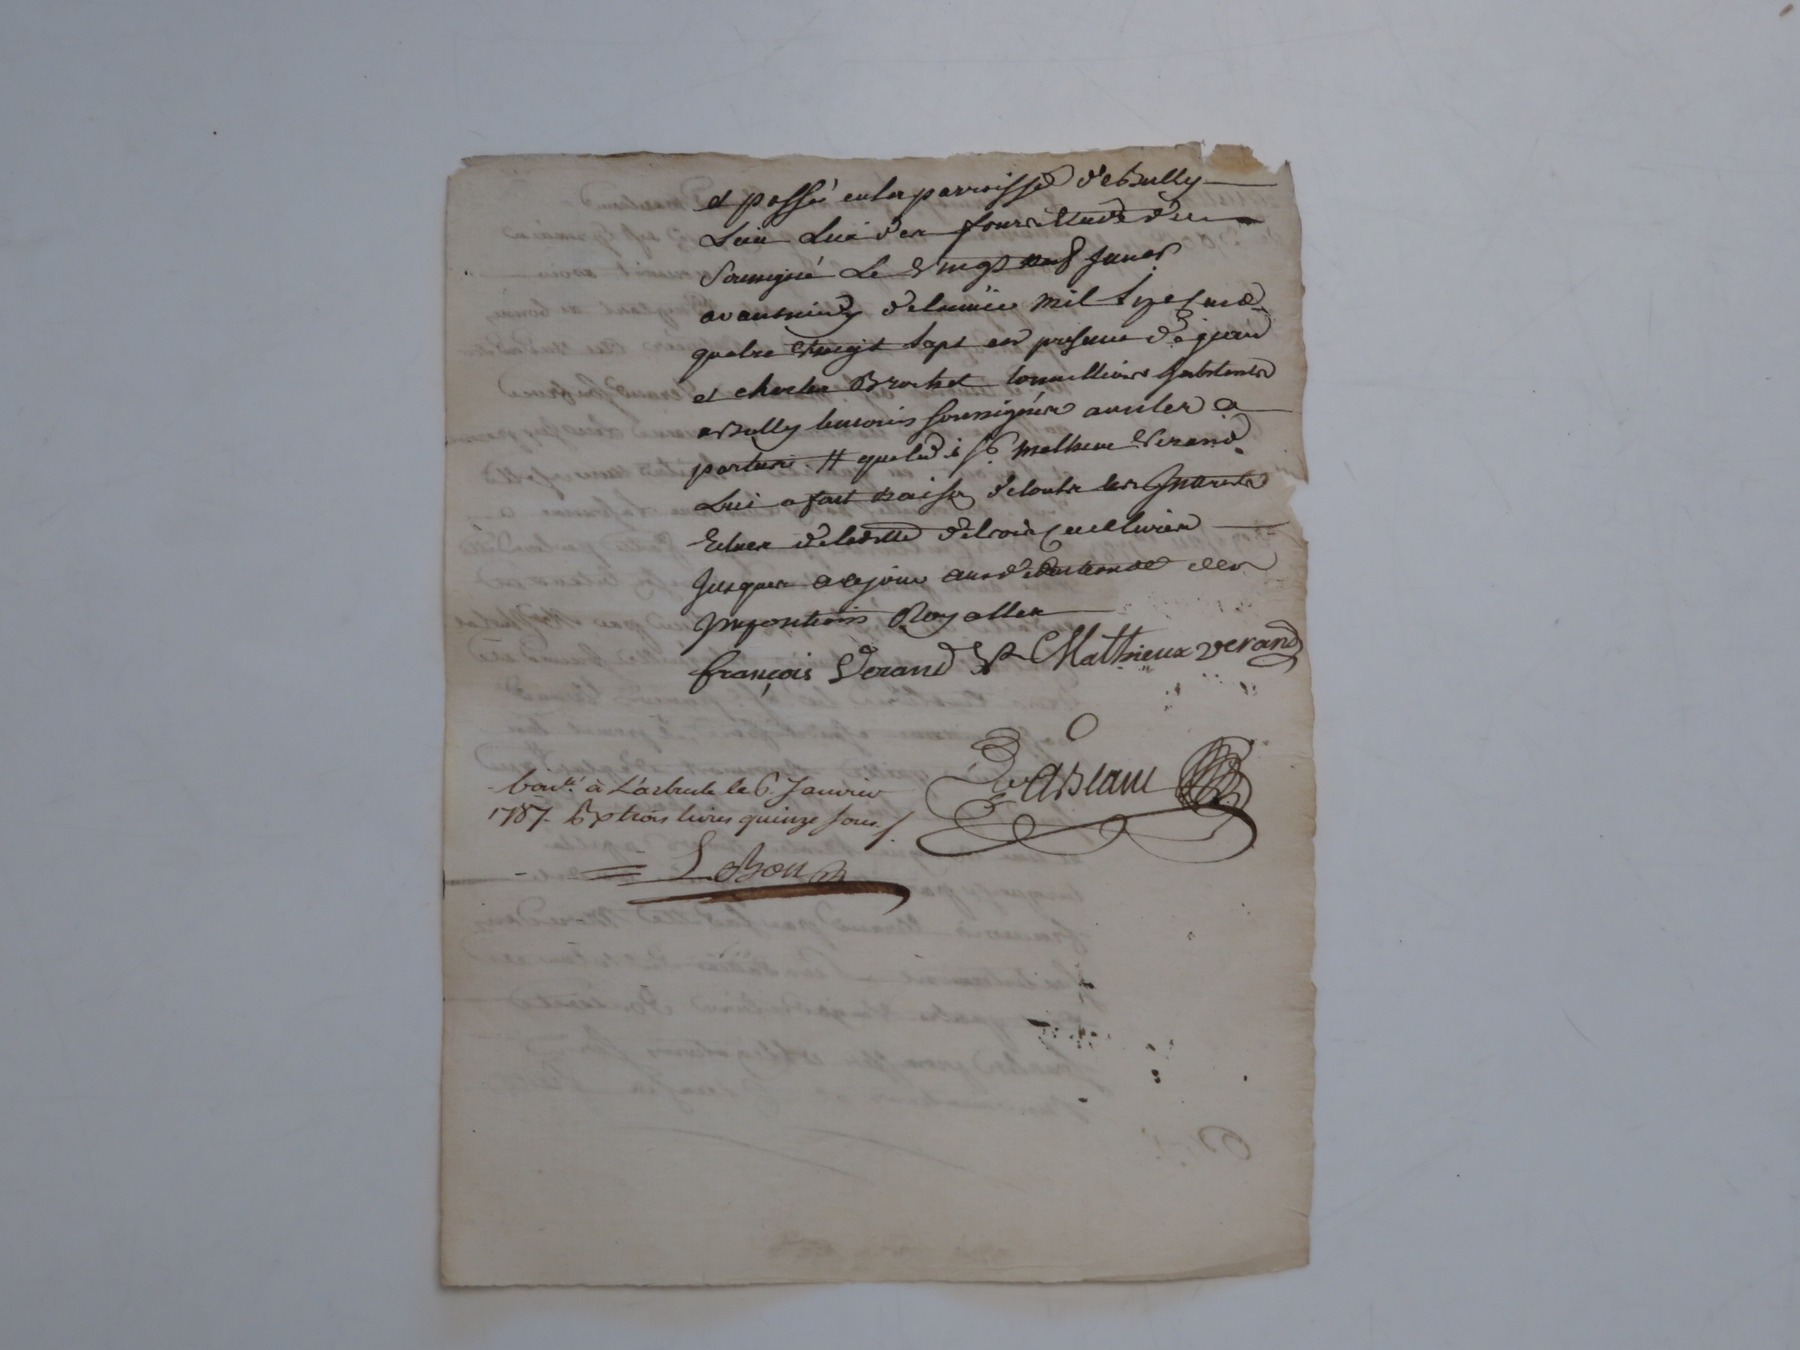 et passé en la parroisse de Bully
Lieu dud. en fourré Etude du
Soussigné Le Vingt neuf Janer
avantmidy de lannée mil Sept Cent
quatre Vingt Sept en presence de jean
et charles Brochet tonnelliers habitants
a Bully temoins Soussignés avec les
parties # que led. Sr. mathieu Verand
Lui a fait raison de toutes les Interests
Echus de ladette de trois Cent livres
Jusques a ce jour aux deductions des
Impositions Royalles
françois Verand Mathieux verand
DeABlanc
à Larbresle le 6. Janvier
1787. trois livres quinze sous
LeBon